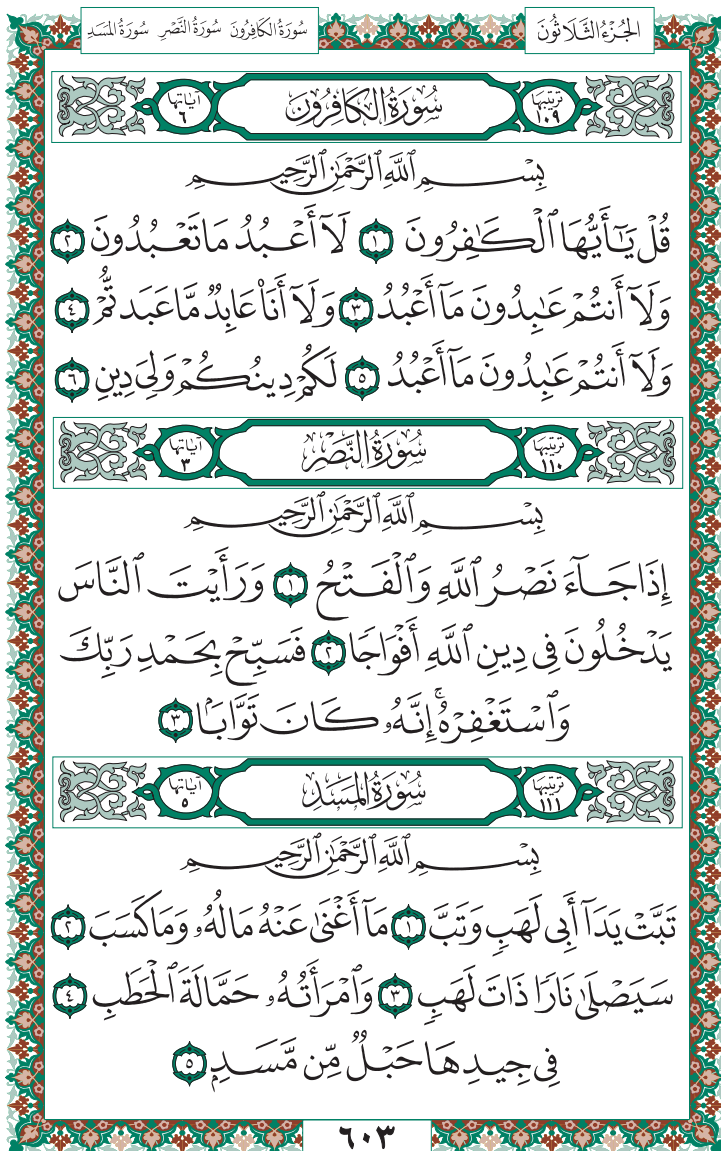 الجُزْءُ الثَّلَاثُونَ سُورَةُ الكَافِرُونَ سُورَةُ النَّصْرِ سُورَةُ المَسَدِ
ترتيبها ١٠٩ سُورَةُ الكَافِرُونَ آياتها ٦
بِسْمِ ٱللَّهِ ٱلرَّحْمَٰنِ ٱلرَّحِيمِ
قُلْ يَـٰٓأَيُّهَا ٱلْكَـٰفِرُونَ ١ لَآ أَعْبُدُ مَا تَعْبُدُونَ ٢
وَلَآ أَنتُمْ عَـٰبِدُونَ مَآ أَعْبُدُ ٣ وَلَآ أَنَا۠ عَابِدٌ مَّا عَبَدتُّمْ ٤
وَلَآ أَنتُمْ عَـٰبِدُونَ مَآ أَعْبُدُ ٥ لَكُمْ دِينُكُمْ وَلِىَ دِينِ ٦
ترتيبها ١١٠ سُورَةُ النَّصْرِ آياتها ٣
بِسْمِ ٱللَّهِ ٱلرَّحْمَٰنِ ٱلرَّحِيمِ
إِذَا جَآءَ نَصْرُ ٱللَّهِ وَٱلْفَتْحُ ١ وَرَأَيْتَ ٱلنَّاسَ
يَدْخُلُونَ فِى دِينِ ٱللَّهِ أَفْوَاجًا ٢ فَسَبِّحْ بِحَمْدِ رَبِّكَ
وَٱسْتَغْفِرْهُ ۚ إِنَّهُۥ كَانَ تَوَّابًۢا ٣
ترتيبها ١١١ سُورَةُ المَسَدِ آياتها ٥
بِسْمِ ٱللَّهِ ٱلرَّحْمَٰنِ ٱلرَّحِيمِ
تَبَّتْ يَدَآ أَبِى لَهَبٍ وَتَبَّ ١ مَآ أَغْنَىٰ عَنْهُ مَالُهُۥ وَمَا كَسَبَ ٢
سَيَصْلَىٰ نَارًا ذَاتَ لَهَبٍ ٣ وَٱمْرَأَتُهُۥ حَمَّالَةَ ٱلْحَطَبِ ٤
فِى جِيدِهَا حَبْلٌ مِّن مَّسَدٍۭ ٥
٦٠٣